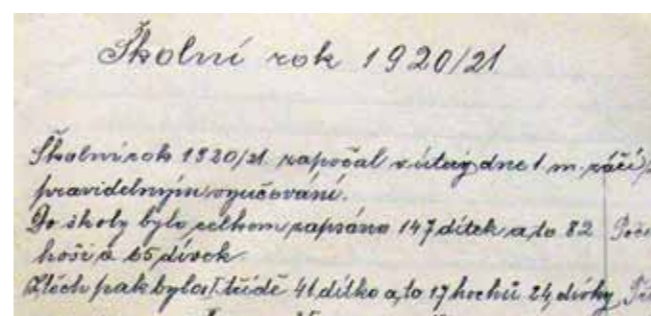 Školní rok 1920/21
Školní rok 1920/21. započal v úterý dne 1 m. září
pravidelným vyučování.
Do školy bylo celkem zapsáno 147 dítek a to 82
hoši a 65 dívek
Z těch pak bylo I třídě 41 dítko a to 17 hochů 24 dívky